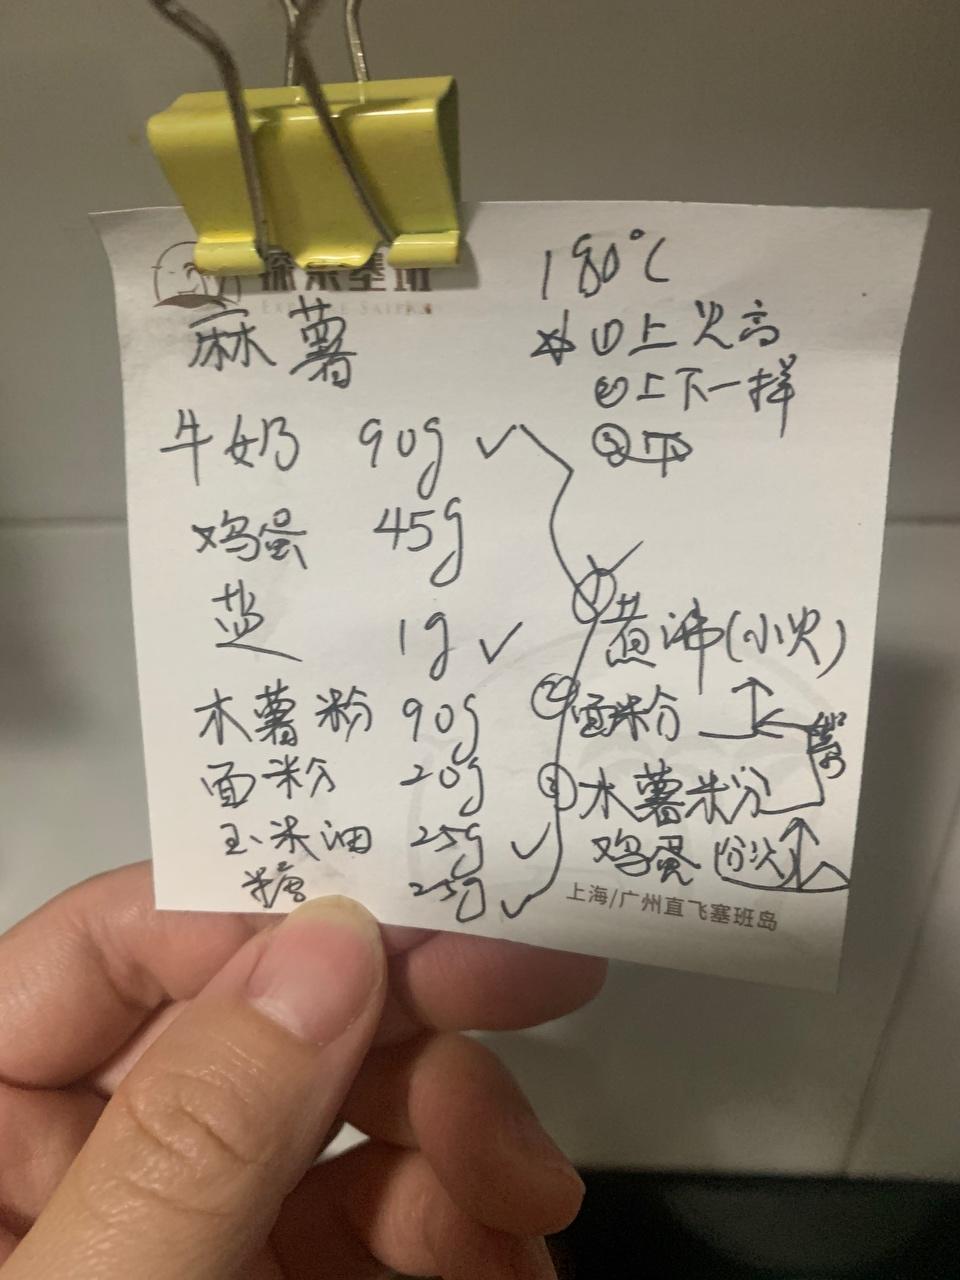 探索塞班
麻薯
牛奶 90g ✓
鸡蛋 45g
盐 1g ✓
木薯粉 90g
面粉 20g
玉米油 25g ✓
糖 25g ✓
180℃
①上火高
②上下一样
③下
① 煮沸(小火)
② 面粉
③ 木薯粉
鸡蛋 (分次)
上海/广州直飞塞班岛